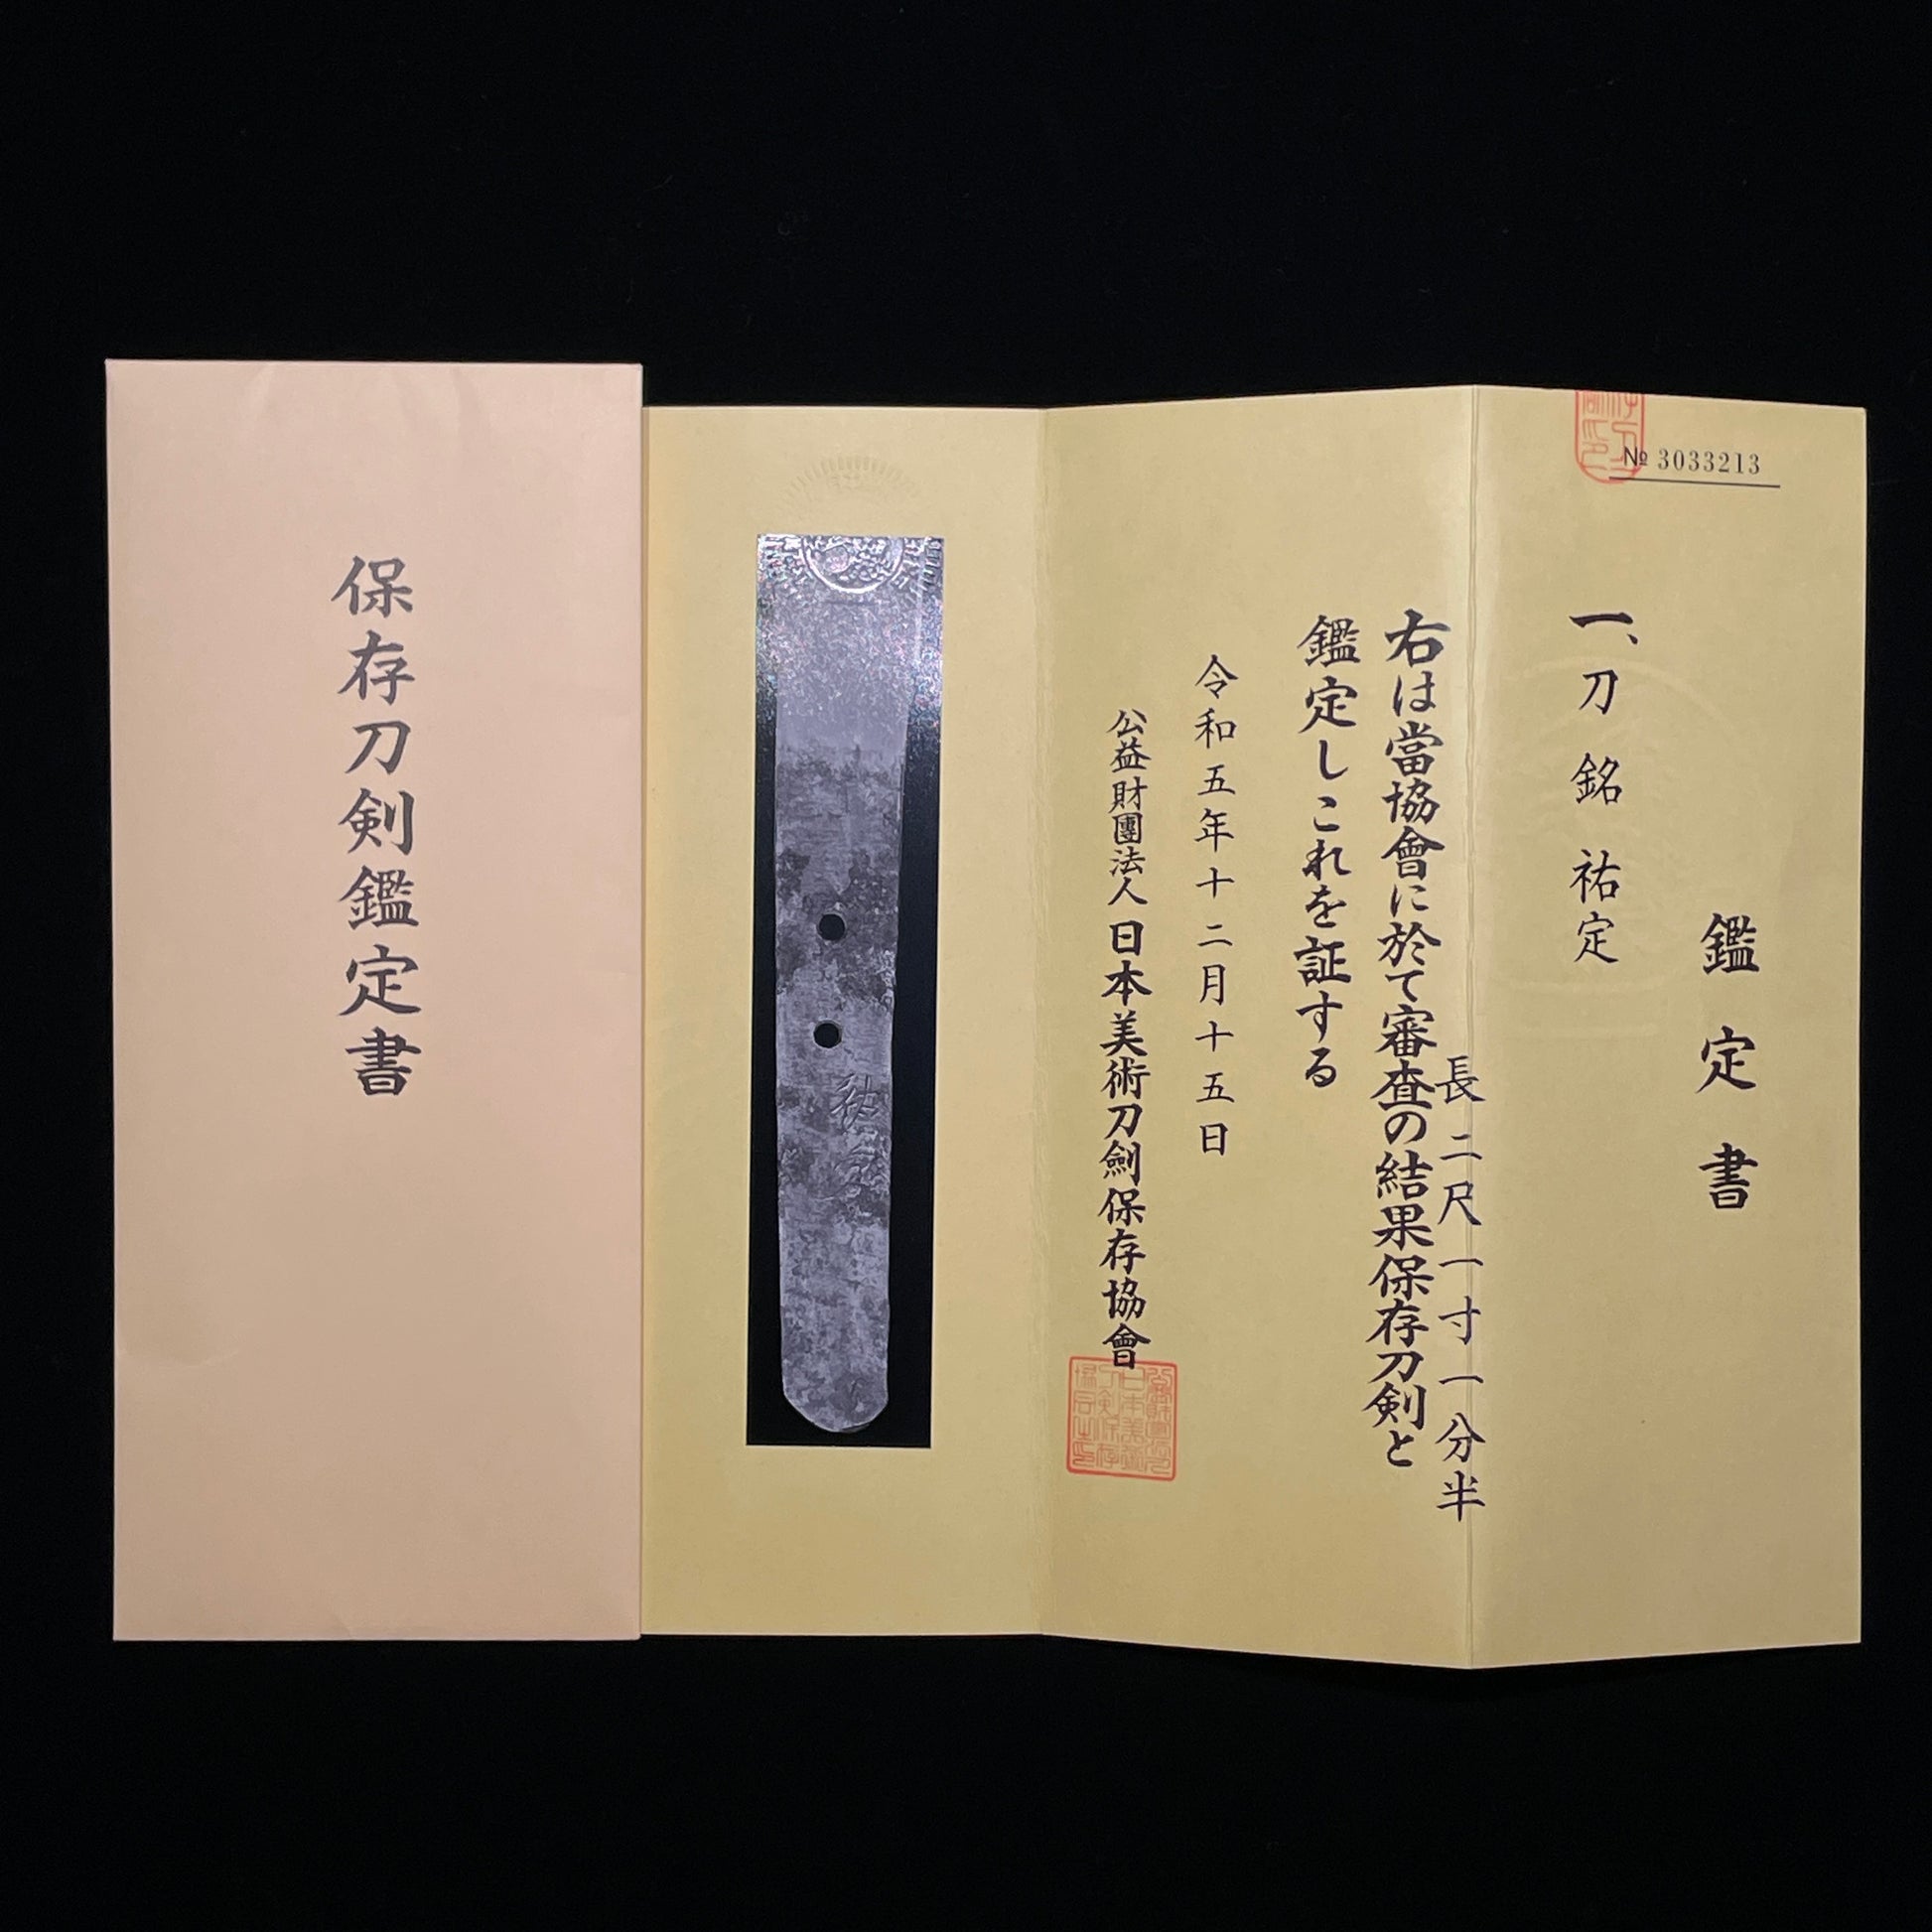 保存刀剣鑑定書
№ 3033213
鑑定書
一、刀 銘 祐定
長 二尺一寸一分半
右は當協會に於て審査の結果保存刀剣と
鑑定しこれを証する
令和五年十二月十五日
公益財團法人日本美術刀劍保存協會